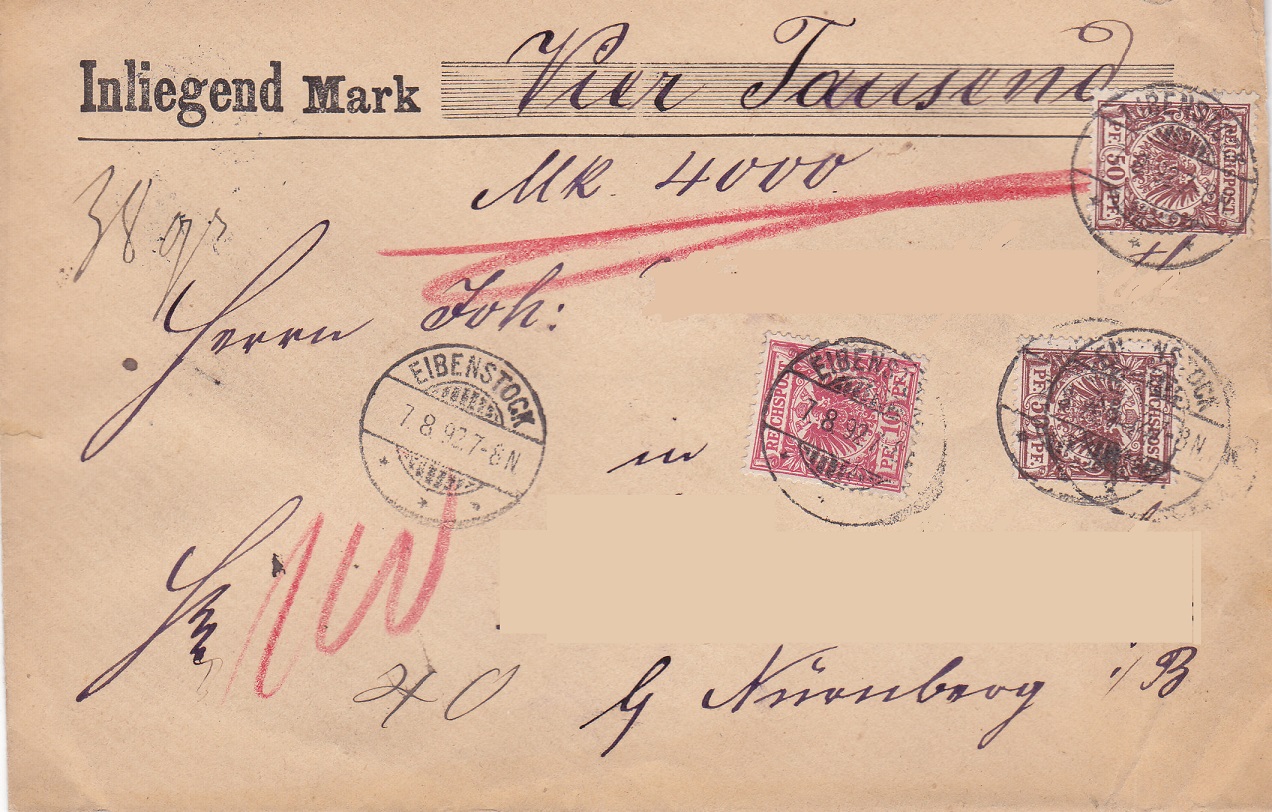 Inliegend Mark Vier Tausend
Mk. 4000.
REICHSPOST
PF. 50 PF.
38 gr
Herrn Joh:
EIBENSTOCK
7.8.92.7-8N
in
REICHSPOST
PF. 10 PF.
EIBENS
7.8.92
REICHSPOST
PF. 50 PF.
NSTOCK
-8N
Nürnberg i/B